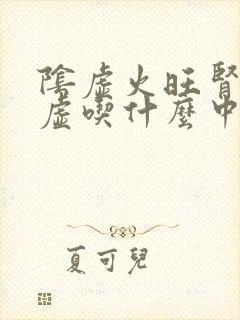 陰虛火旺腎
虛喫什麼中
夏可兒